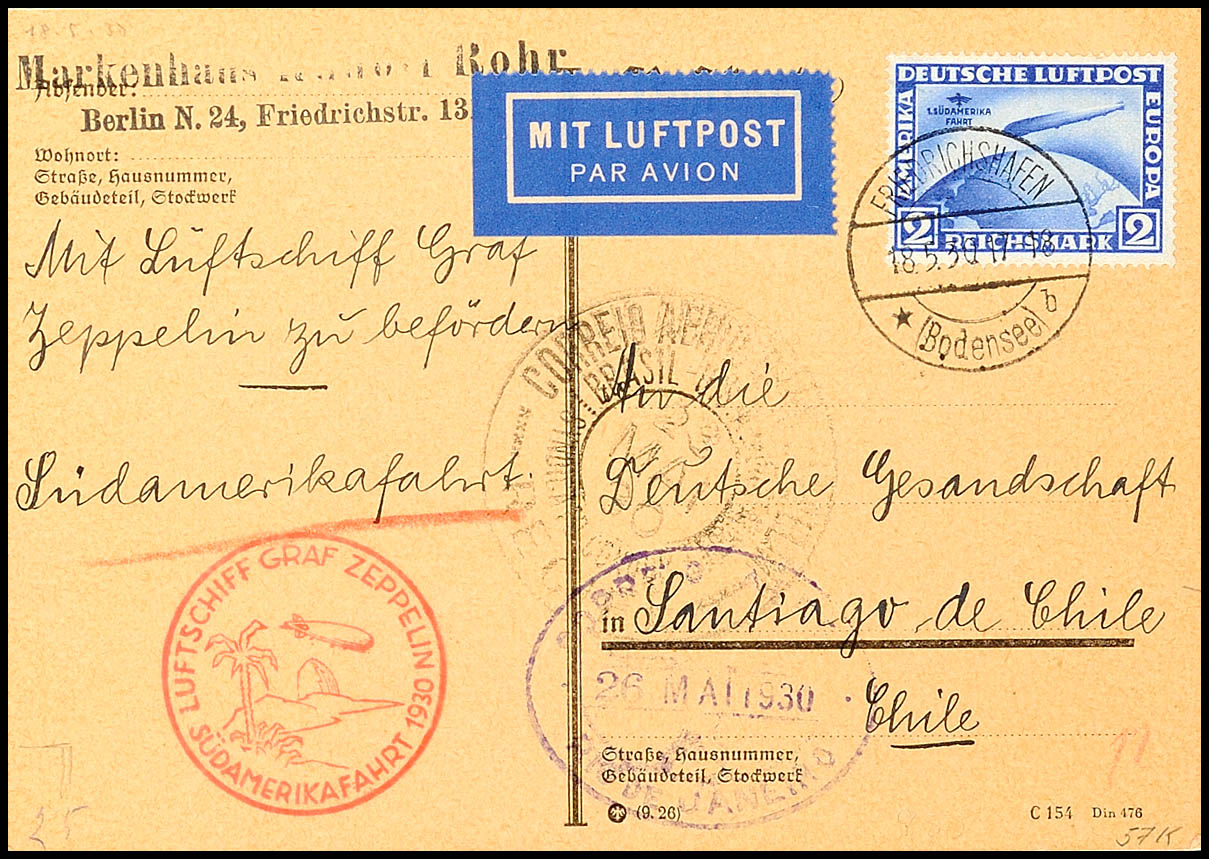 Markenhaus Rohr
Absender:
Berlin N. 24, Friedrichstr. 13
Wohnort:
Straße, Hausnummer,
Gebäudeteil, Stockwerk
MIT LUFTPOST
PAR AVION
DEUTSCHE LUFTPOST
AMERIKA
EUROPA
1. SÜDAMERIKA
FAHRT
2 REICHSMARK 2
FRIEDRICHSHAFEN
18.5.30.17-18
★ (Bodensee) b
Mit Luftschiff Graf
Zeppelin zu befördern
Südamerikafahrt.
CORREIO AEREO
BRASIL
An die
Deutsche Gesandschaft
in Santiago de Chile
Chile
26 MAI 1930
RIO DE JANEIRO
LUFTSCHIFF GRAF ZEPPELIN 1930
SÜDAMERIKAFAHRT
Straße, Hausnummer,
Gebäudeteil, Stockwerk
(9.26)
C 154 Din 476
25
57K